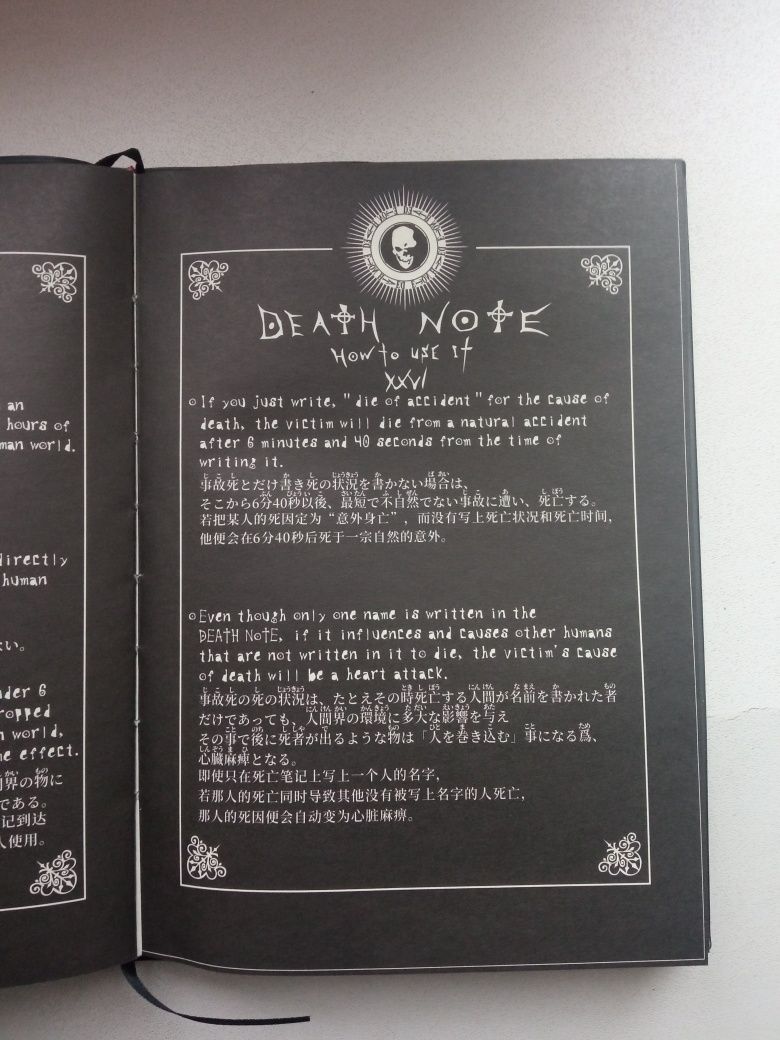 an
hours of
man world.
directly
human
ない。
nder 6
ropped
n world,
he effect.
界の物に
である。
记到达
人使用。
DEATH NOTE
HOW to USE It
XXVI
If you just write, "die of accident" for the cause of
death, the victim will die from a natural accident
after 6 minutes and 40 seconds from the time of
writing it.
事故死とだけ書き死の状況を書かない場合は、
そこから6分40秒以後、最短で不自然でない事故に遭い、死亡する。
若把某人的死因定为“意外身亡”，而没有写上死亡状况和死亡时间，
他便会在6分40秒后死于一宗自然的意外。
Even though only one name is written in the
DEATH NOTE, if it influences and causes other humans
that are not written in it to die, the victim's cause
of death will be a heart attack.
事故死の死の状況は、たとえその時死亡する人間が名前を書かれた者
だけであっても、人間界の環境に多大な影響を与え
その事で後に死者が出るような物は「人を巻き込む」事になる爲、
心臓麻痺となる。
即使只在死亡笔记上写上一个人的名字，
若那人的死亡同时导致其他没有被写上名字的人死亡，
那人的死因便会自动变为心脏麻痹。